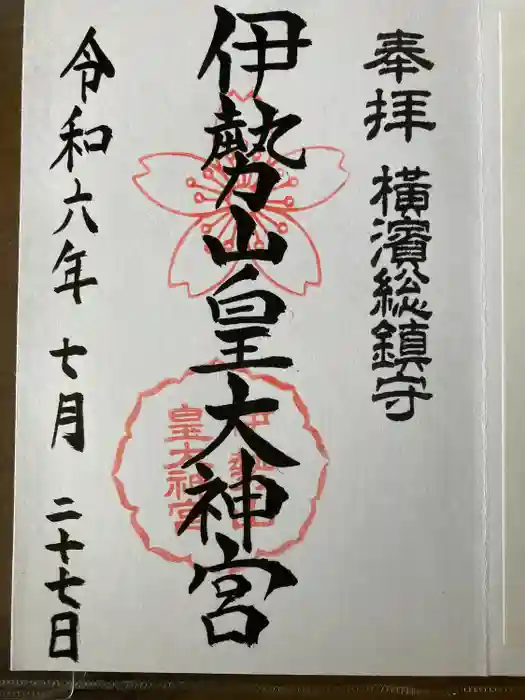 奉拝
横濱総鎮守
伊勢山皇大神宮
伊勢山
皇大神宮
令和六年 七月 二十七日